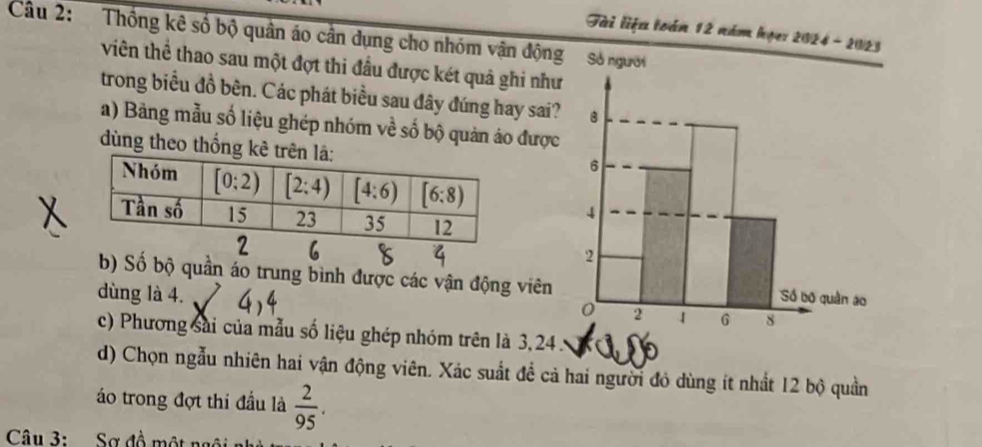 Tài liệu toán 12 năm học 2024 - 2025
Câu 2: Thống kê số bộ quần áo cần dụng cho nhóm vận động
viên thể thao sau một đợt thi đấu được kết quả ghi như
trong biểu đồ bên. Các phát biểu sau đây đúng hay sai?
a) Bảng mẫu số liệu ghép nhóm về số bộ quần áo được
dùng theo thống kê trên là:
Nhóm [0;2) [2;4) [4;6) [6;8)
Tần số 15 23 35 12
X
2 6 8 4
b) Số bộ quần áo trung bình được các vận động viên
dùng là 4. 4,4
c) Phương sai của mẫu số liệu ghép nhóm trên là 3,24.
d) Chọn ngẫu nhiên hai vận động viên. Xác suất để cả hai người đó dùng ít nhất 12 bộ quần
áo trong đợt thi đấu là 2/95.
Số người
8
6
4
2
O 2 4 6 8
Số bộ quần áo
Câu 3: Sơ đồ một